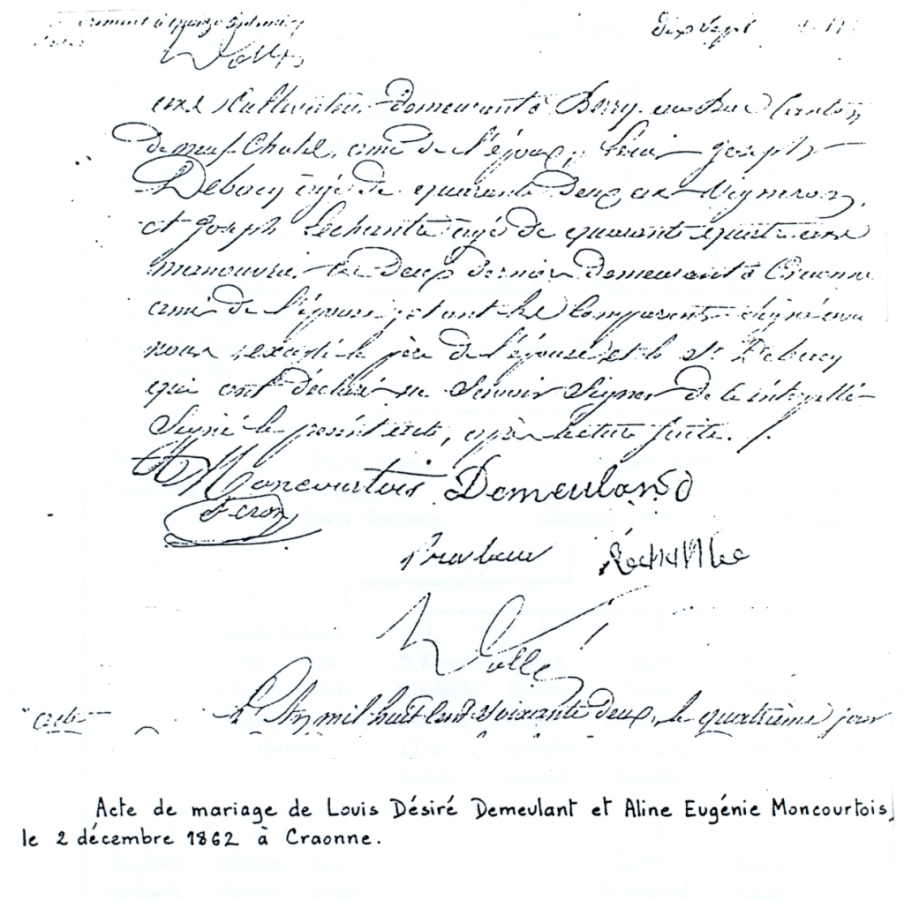 Dix sept
ans Cultivateur demeurant à Berry au Bac Canton
de neuf-Chatel, ami de l'époux, Louis Joseph
Debucy âgé de quarante deux ans Vigneron,
et Joseph Lechantre âgé de quarante quatre ans
manouvrier les Deux Dernier demeurant à Craonne
ami de l'épouse, et ont les Comparants signé avec
nous excepté le père de l'épouse et le Sr Debucy
qui ont déclaré ne Savoir Signer de ce interpellé
Signé le présent acte, après lecture faite.
A Moncourtois Demeuland
feron
L'An mil huit cent soixante deux, le quatrième jour
Acte de mariage de Louis Désiré Demeulant et Aline Eugénie Moncourtois,
le 2 décembre 1862 à Craonne.